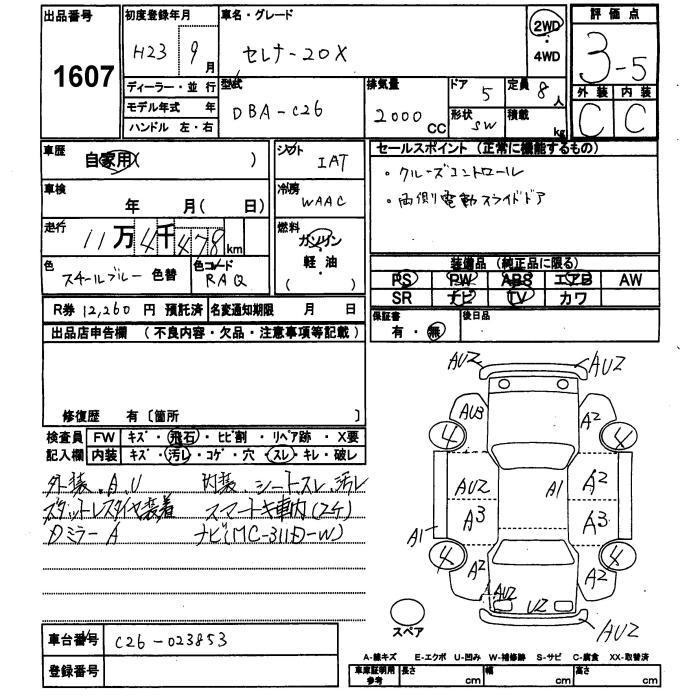 出品番号 初度登録年月 車名・グレード 評価点
1607 H23 9月 セレナ-20X 2WD ・ 4WD 3-5
ディーラー・並行 型式 排気量 ドア 定員 外装 内装
モデル年式 年 DBA-C26 2000 CC 5 8人 C C
ハンドル 左・右 形状 SW 積載 kg
車歴 自家用( ) シフト IAT セールスポイント (正常に機能するもの)
・クルーズコントロール
車検 年 月( 日) 冷房 WAAC ・両側電動スライドドア
走行 11万4千478km 燃料 ガソリン ・ 軽油 ( )
色 スチールブルー 色替 色コード RAQ
装備品 (純正品に限る)
PS PW ABS エアB AW
SR ナビ TV カワ
R券 12,260 円 預託済 名変通知期限 月 日
保証書 有・無 後日品
出品店申告欄 (不良内容・欠品・注意事項等記載)
修復歴 有〔箇所 〕
検査員 FW キズ・飛石・ヒビ割・リペア跡・X要
記入欄 内装 キズ・汚レ・コゲ・穴・スレ・キレ・破レ
外装.A.U 内装.シートスレ.汚レ
スタットレスタイヤ装着 スマートキ車内(2ケ)
ミラーA ナビ(MC-311D-W)
AUZ AUZ
AUB A2
4 4
AUZ A1 A2
A3 A3
A1
4 4
A2 A2
AUZ UZ
AUZ
スペア
車台番号 C26-023853
登録番号
A-線キズ E-エクボ U-凹み W-補修跡 S-サビ C-腐食 XX-取替済
車庫証明用参考 長さ cm 幅 cm 高さ cm